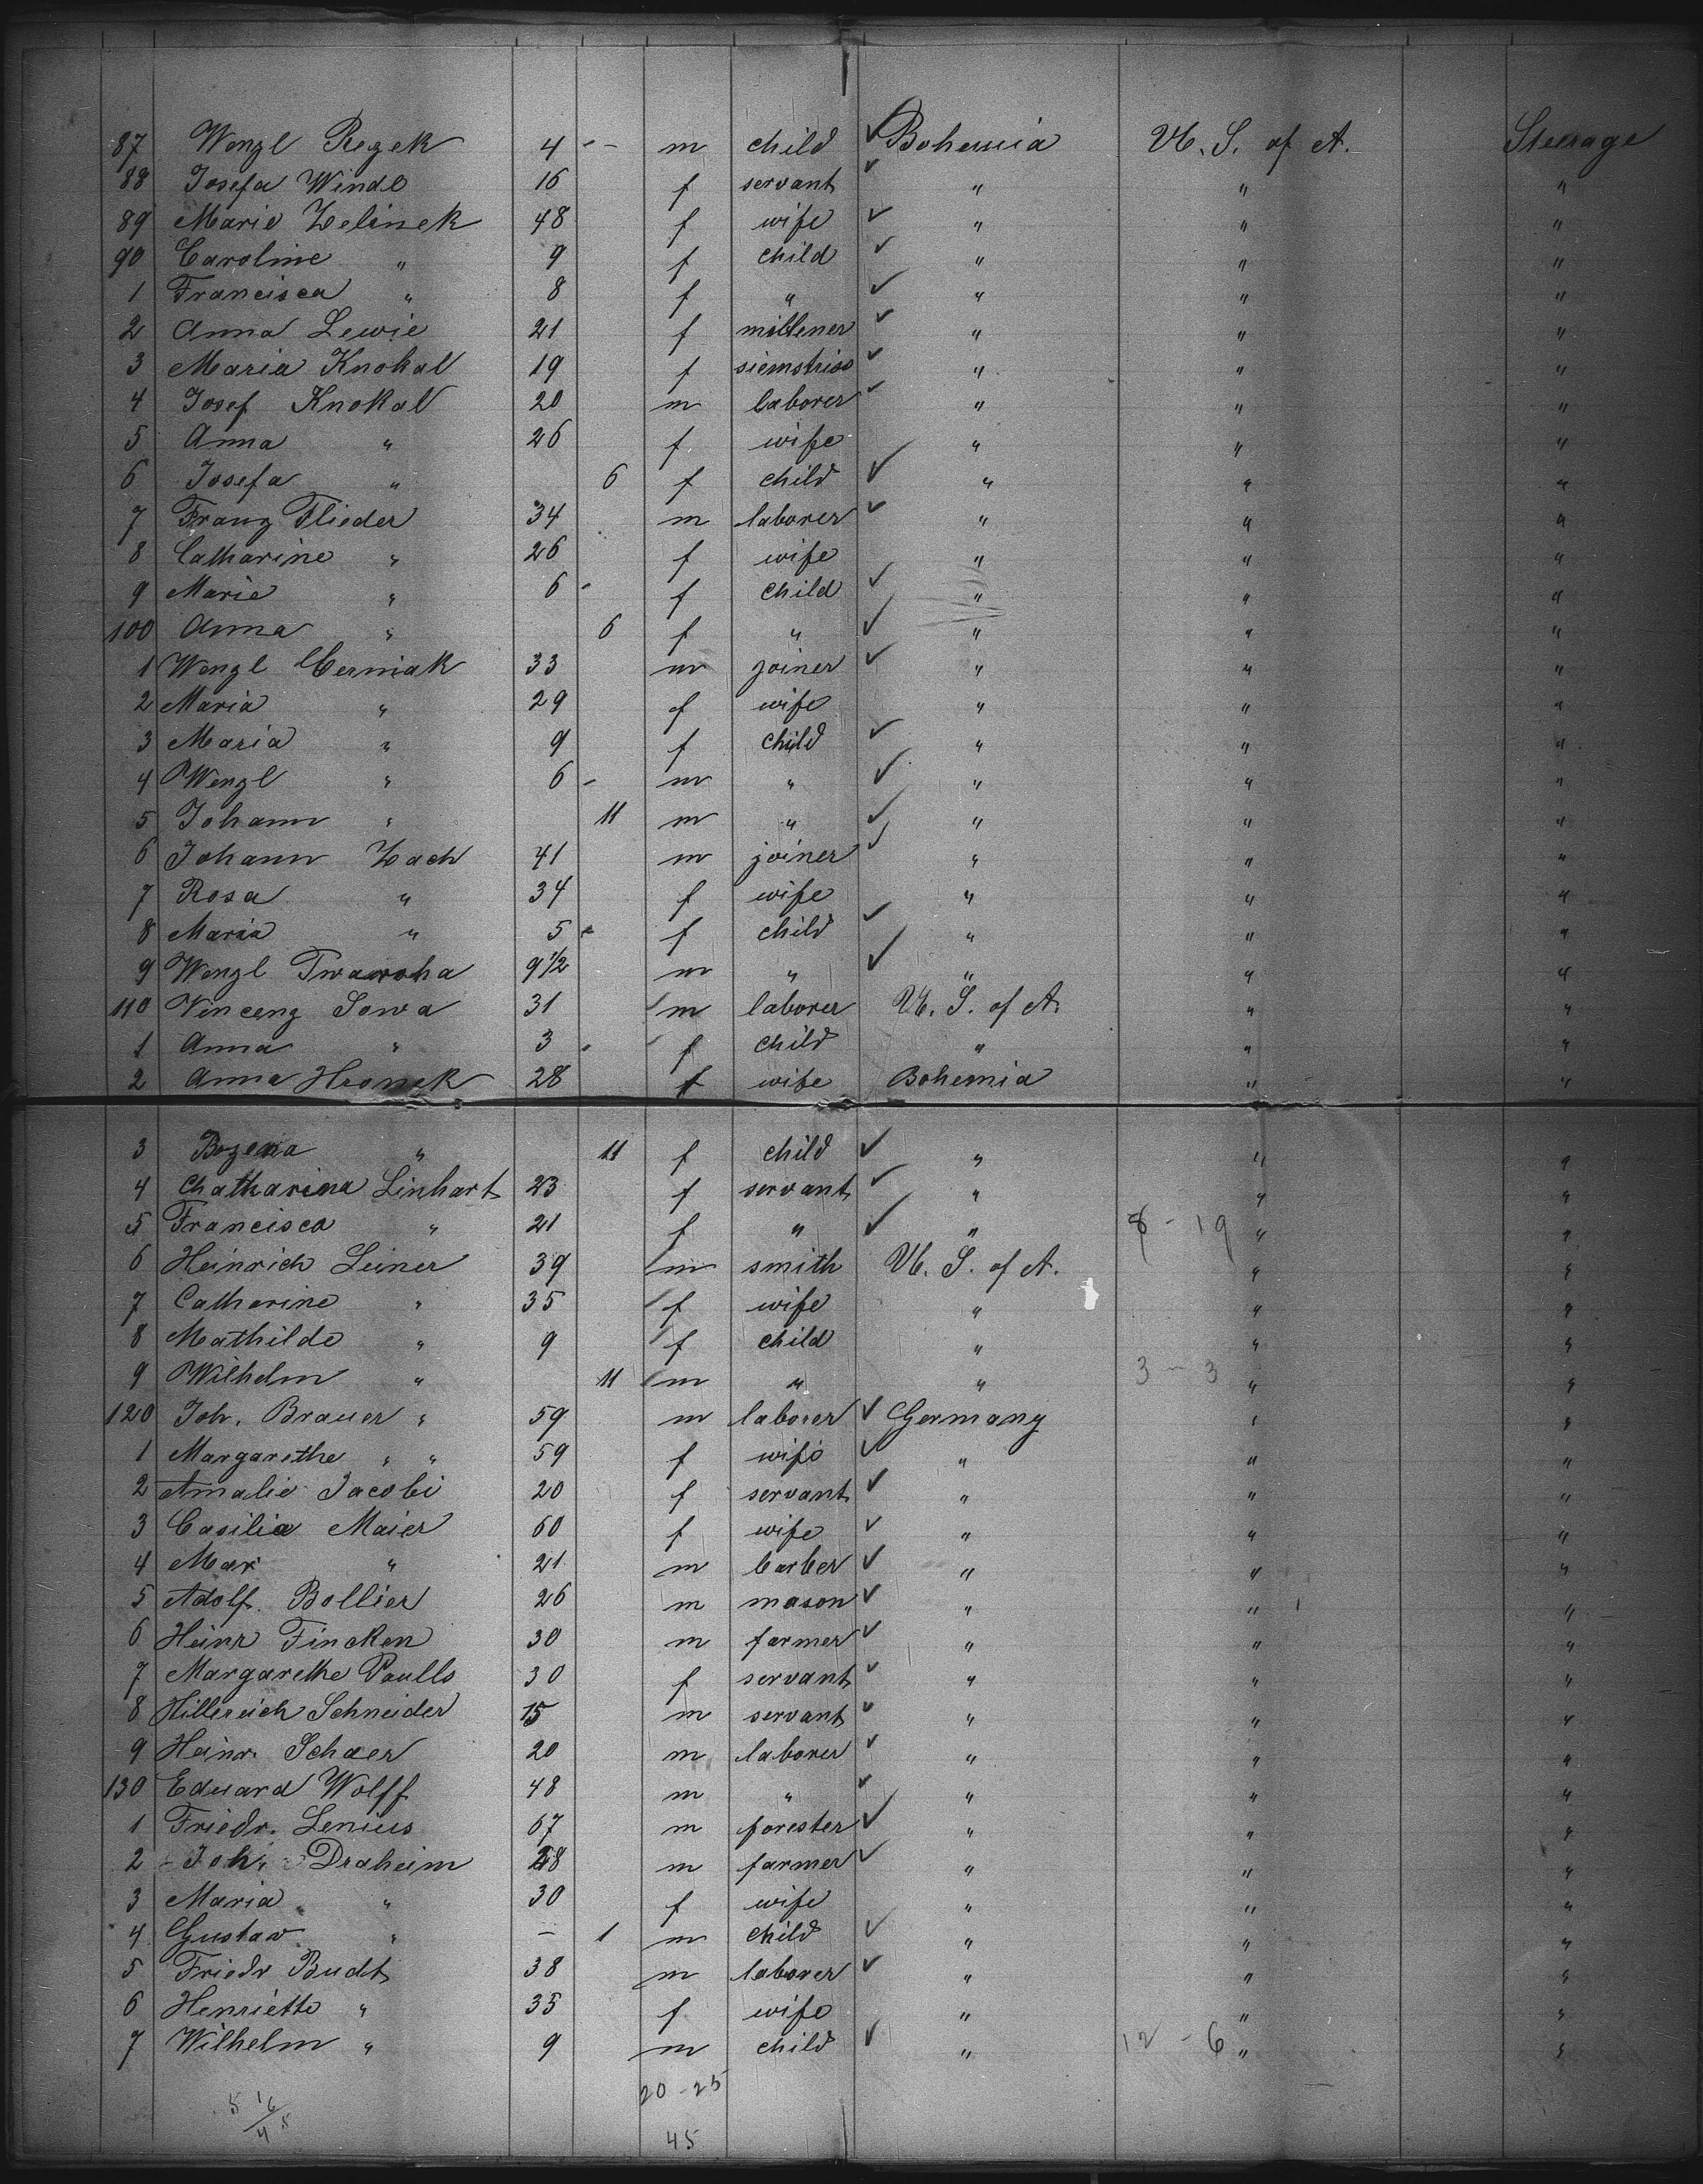 87 Wenzl Regek 4 - - m child ✓ Bohemia U. S. of A. Steerage
88 Josefa Winds 16 f servant ✓ " " "
89 Marie Zelinek 48 f wife ✓ " " "
90 Caroline " 9 f child ✓ " " "
1 Francisca " 8 f " ✓ " " "
2 Anna Lewie 21 f millener ✓ " " "
3 Maria Knokal 19 f siemstriss ✓ " " "
4 Josef Knokal 20 m laborer ✓ " " "
5 Anna " 26 f wife " " "
6 Josefa " 6 f child ✓ " " "
7 Franz Flieder 34 m laborer ✓ " " "
8 Catharine " 26 f wife " " "
9 Marie " 6 - f child ✓ " " "
100 Anna " 6 f " ✓ " " "
1 Wenzl Cerniak 33 m joiner ✓ " " "
2 Maria " 29 f wife " " "
3 Maria " 9 f child ✓ " " "
4 Wenzl " 6 - m " ✓ " " "
5 Johann " 11 m " ✓ " " "
6 Johann Zach 41 m joiner ✓ " " "
7 Rosa " 34 f wife " " "
8 Maria " 5 - f child ✓ " " "
9 Wenzl Twawoha 9 1/2 m " ✓ " " "
110 Vincenz Sowa 31 m laborer U. S. of A. " "
1 Anna " 3 - f child " " "
2 Anna Hronek 28 f wife Bohemia " "
3 Bozena " 11 f child ✓ " " "
4 Chatharina Linhart 23 f servant ✓ " " "
5 Francisca " 21 f " ✓ " 8 - 19 " "
6 Heinrich Leiner 39 m smith U. S. of A. " "
7 Catherine " 35 f wife " " "
8 Mathilde " 9 f child " " "
9 Wilhelm " 11 m " " 3 - 3 " "
120 Joh. Brauer " 59 m laborer ✓ Germany " "
1 Margarethe " " 59 f wife ✓ " " "
2 Amalie Jacobi 20 f servant ✓ " " "
3 Casilia Maier 60 f wife ✓ " " "
4 Max " 21 m barber ✓ " " "
5 Adolf. Bollier 26 m mason ✓ " " "
6 Heinr Fincken 30 m farmer ✓ " " "
7 Margarethe Paulls 30 f servant ✓ " " "
8 Hillereich Schneider 15 m servant ✓ " " "
9 Heinr. Schaer 20 m laborer ✓ " " "
130 Eduard Wolff 48 m " ✓ " " "
1 Friedr. Lenius 67 m forester ✓ " " "
2 Joh. Draheim 28 m farmer ✓ " " "
3 Maria " 30 f wife " " "
4 Gustav " - 1 m child ✓ " " "
5 Friedr Budt 38 m laborer ✓ " " "
6 Henriette " 35 f wife " " "
7 Wilhelm " 9 m child ✓ " 12 - 6 " "
20 - 25
45